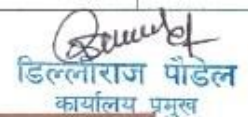 डिल्लीराज पौडेल
कार्यालय प्रमुख